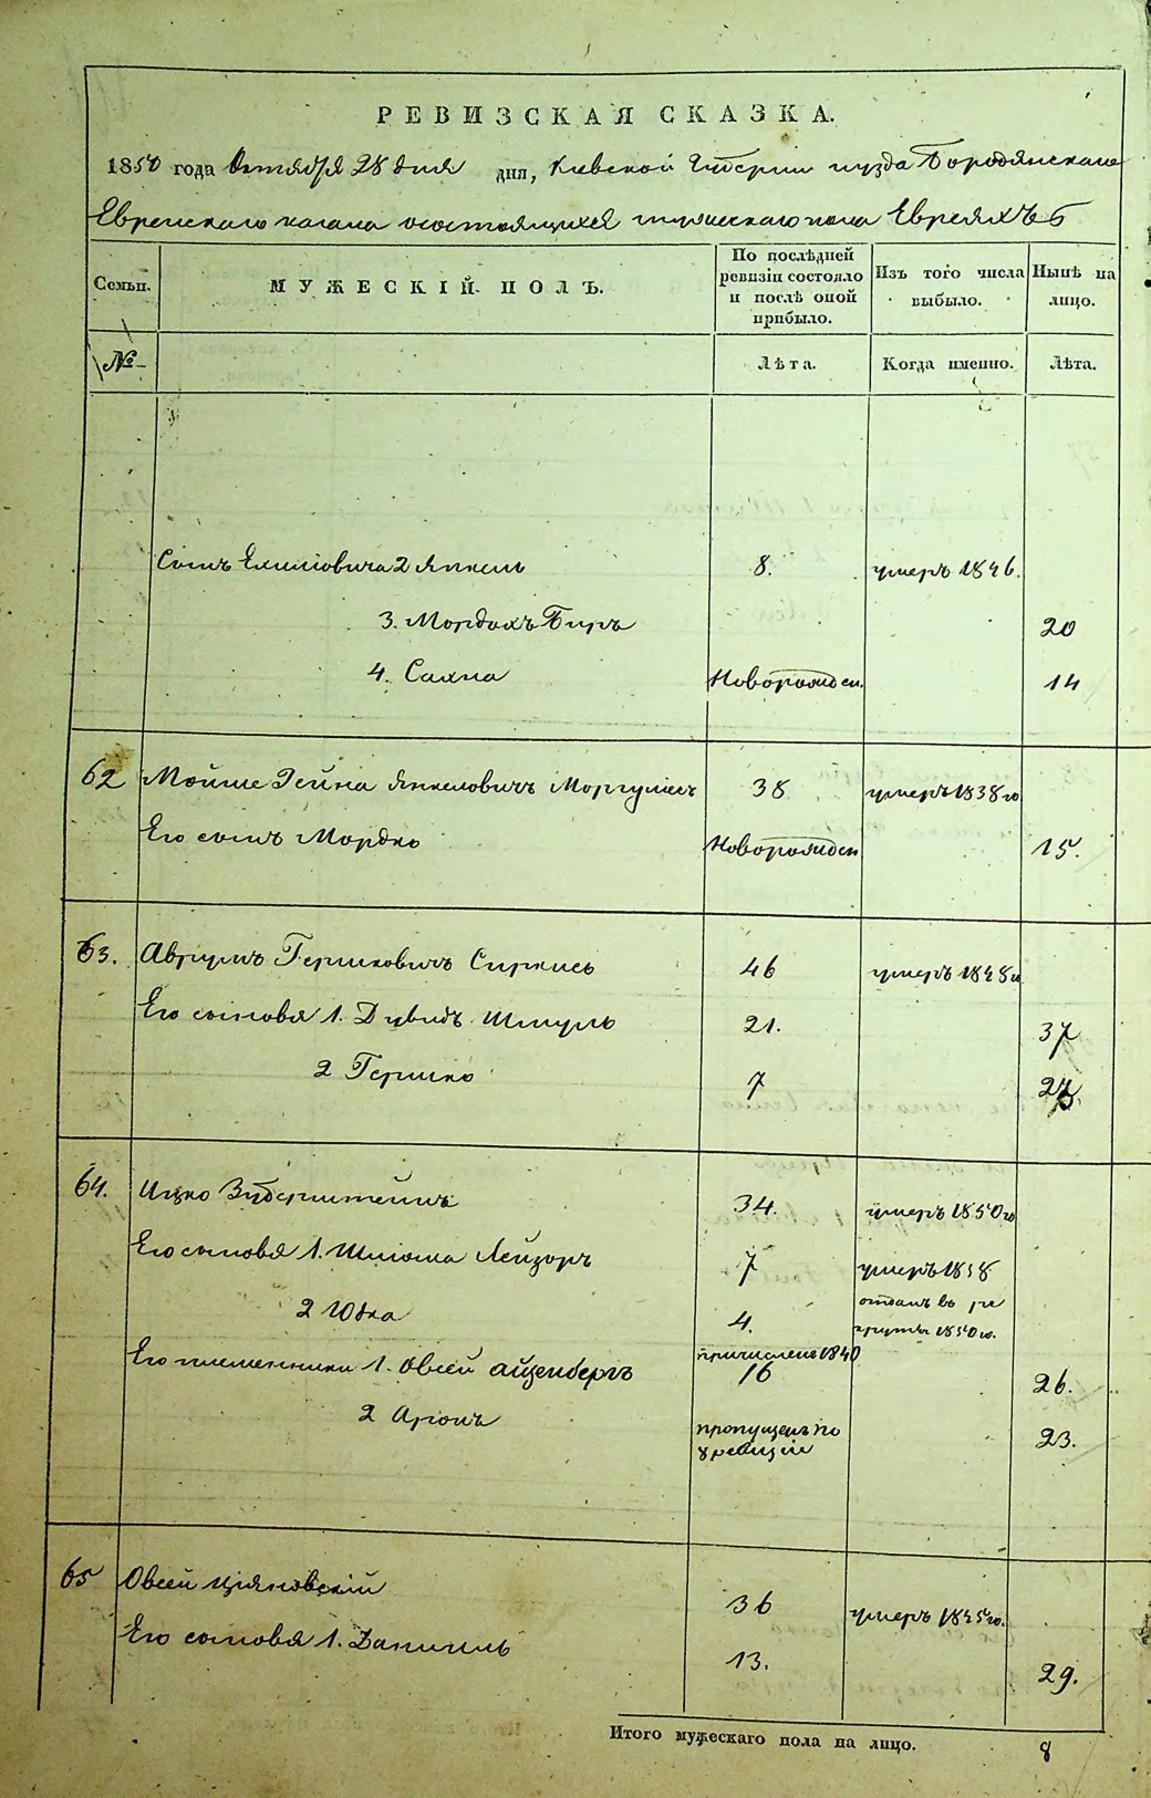 РЕВИЗСКАЯ СКАЗКА.
1850 года Октября 28 дня дня, Киевской Губернии уезда Бородянскаго
Еврейскаго кагала о состоящихся мужескаго пола Евреяхъ
Семьи. МУЖЕСКІЙ ПОЛЪ. По послѣдней ревизіи состояло и послѣ оной прибыло. Изъ того числа выбыло. Нынѣ на лицо.
№ Лѣта. Когда именно. Лѣта.
Сынъ 2 Янкель 8. умеръ 1846.
3. Мордахъ Биръ 20
4. Сахна Новорожден. 14
62 Мойше Гейна Янкеловичъ Моргулисъ 38 умеръ 1838го
Его сынъ Мордко Новорожден 15.
63. Аврумъ Гершковичъ Сиркись 46 умеръ 1848го
Его сыновя 1. Дувидъ Шмуль 21. 37
2 Гершко 7 23.
64. Ицко Зуберштейнъ 34. умеръ 1850го
Его сыновя 1. Шлiома Лейзоръ 7 умеръ 1838
2 Юдка 4. отданъ въ рекруты 1850го.
Его племенники 1. Овсей Айзенбергъ причисленъ 1840 16 26.
2 Аронъ пропущенъ по ревизіи 23.
65 Овсей Ціяновскій 36 умеръ 1845го.
Его сыновя 1. Данииль 13. 29.
Итого мужескаго пола на лицо. 8